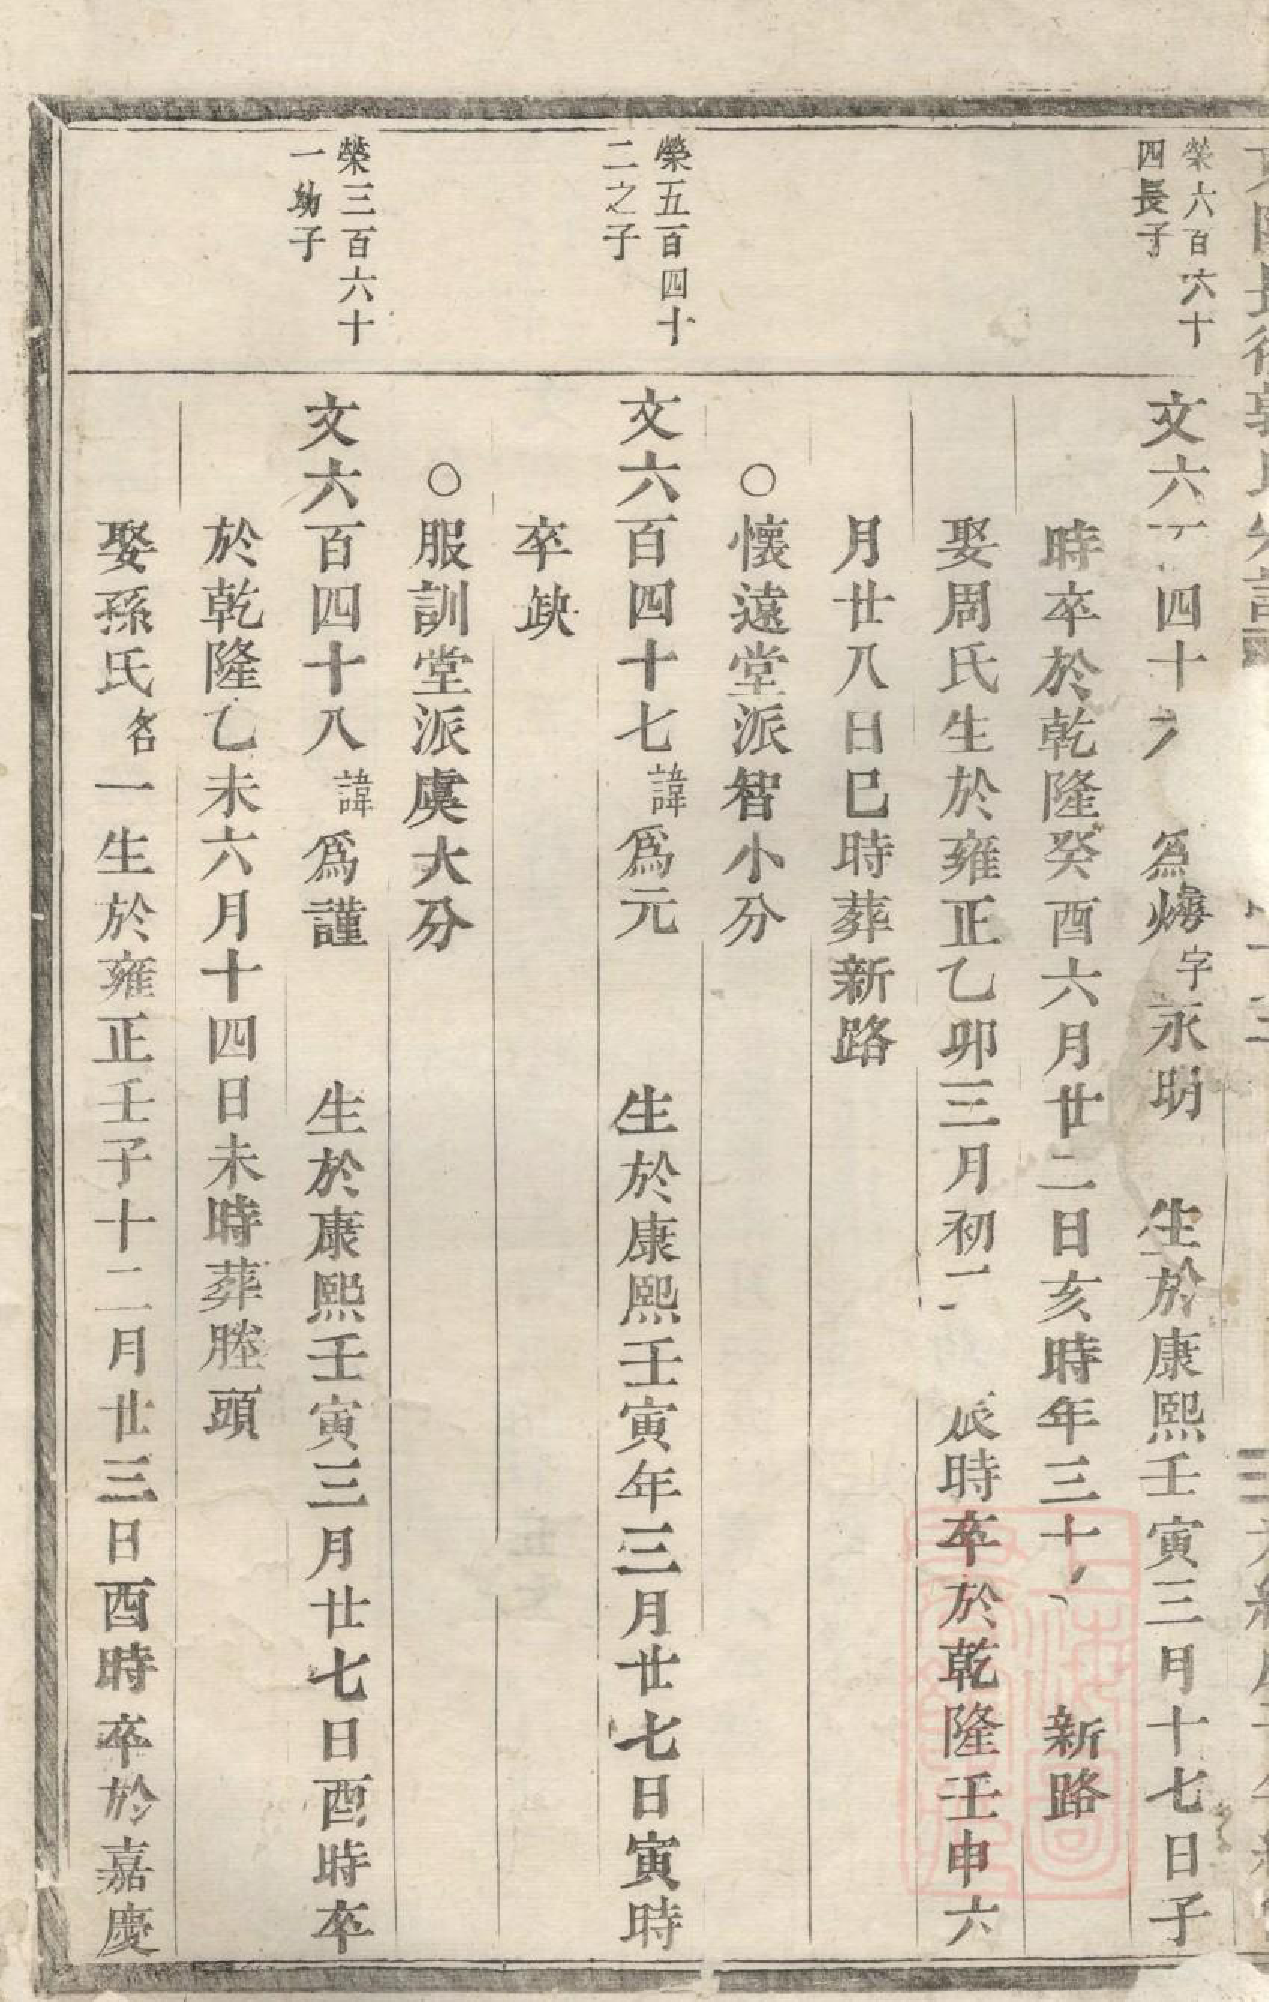 榮六百六十
四長子
文六 四十 爲燽字永明 生於康熙壬寅三月十七日子
時卒於乾隆癸酉六月廿二日亥時年三十 新路
娶周氏生於雍正乙卯三月初二 辰時卒於乾隆壬申六
月廿八日巳時葬新路
○懷遠堂派智小分
榮五百四十
二之子
文六百四十七諱爲元 生於康熙壬寅年三月廿七日寅時
卒缺
○服訓堂派虞大分
榮三百六十
一幼子
文六百四十八諱爲謹 生於康熙壬寅三月廿七日酉時卒
於乾隆乙未六月十四日未時葬塍頭
娶孫氏名一生於雍正壬子十二月廿三日酉時卒於嘉慶